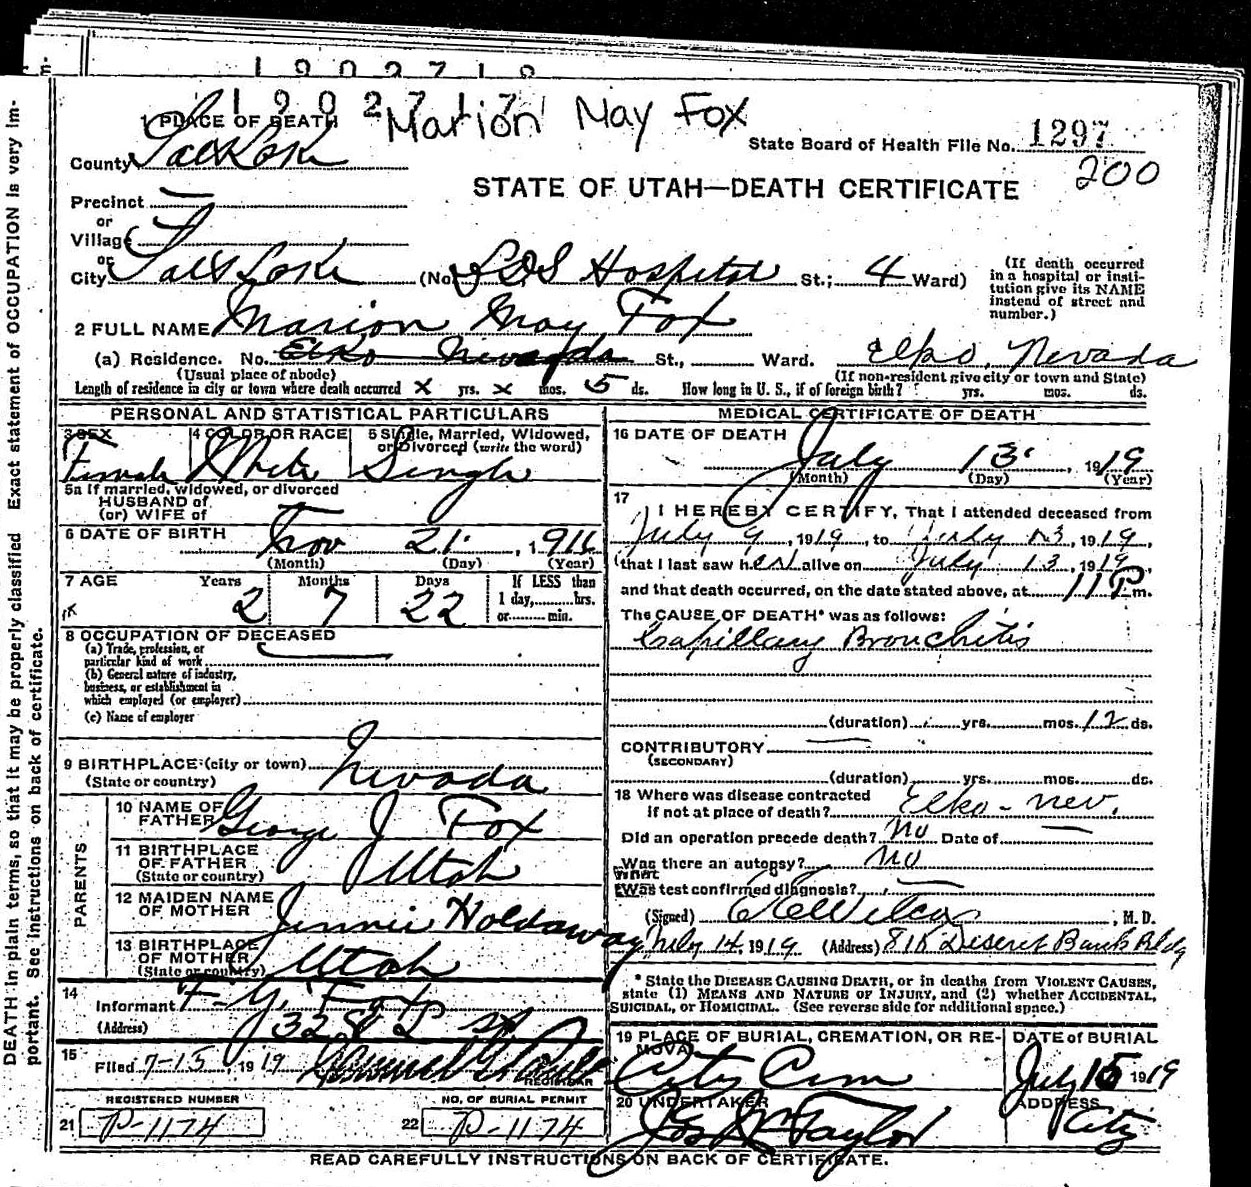 1902718
1902717
Marion May Fox
1 PLACE OF DEATH
County Salt Lake
State Board of Health File No. 1297
200
STATE OF UTAH—DEATH CERTIFICATE
Precinct
or
Village
or
City Salt Lake (No. LDS Hospital St.; 4 Ward)
(If death occurred in a hospital or institution give its NAME instead of street and number.)
2 FULL NAME Marion May Fox
(a) Residence. No. Elko Nevada St., Ward. Elko, Nevada
(Usual place of abode) (If non-resident give city or town and State)
Length of residence in city or town where death occurred x yrs. x mos. 5 ds. How long in U. S., if of foreign birth? yrs. mos. ds.
PERSONAL AND STATISTICAL PARTICULARS
3 SEX 4 COLOR OR RACE 5 Single, Married, Widowed, or Divorced (write the word)
Female White Single
5a If married, widowed, or divorced
HUSBAND of
(or) WIFE of
6 DATE OF BIRTH Nov 21, 1916
(Month) (Day) (Year)
7 AGE Years Months Days If LESS than
2 7 22 1 day, hrs.
or min.
8 OCCUPATION OF DECEASED
(a) Trade, profession, or
particular kind of work
(b) General nature of industry,
business, or establishment in
which employed (or employer)
(c) Name of employer
9 BIRTHPLACE (city or town) Nevada
(State or country)
PARENTS
10 NAME OF FATHER George J Fox
11 BIRTHPLACE OF FATHER Utah
(State or country)
12 MAIDEN NAME OF MOTHER Jennie Holdaway
13 BIRTHPLACE OF MOTHER Utah
(State or country)
14
Informant F. G. Fox
(Address) 328 L St
15
Filed 7-15, 1919
REGISTRAR
REGISTERED NUMBER NO. OF BURIAL PERMIT
21 P-1174 22 P-1174
MEDICAL CERTIFICATE OF DEATH
16 DATE OF DEATH
July 13, 1919
(Month) (Day) (Year)
17
I HEREBY CERTIFY, That I attended deceased from
July 9, 1919, to July 13, 1919,
that I last saw her alive on July 13, 1919,
and that death occurred, on the date stated above, at 11 P m.
The CAUSE OF DEATH* was as follows:
Capillary Bronchitis
(duration) yrs. mos. 12 ds.
CONTRIBUTORY
(SECONDARY)
(duration) yrs. mos. ds.
18 Where was disease contracted
if not at place of death? Elko - Nev.
Did an operation precede death? No Date of
Was there an autopsy? No
What
Was test confirmed diagnosis?
(Signed) Wilcox, M. D.
July 14, 1919 (Address) 818 Deseret Bank Bldg
* State the DISEASE CAUSING DEATH, or in deaths from VIOLENT CAUSES,
state (1) MEANS AND NATURE OF INJURY, and (2) whether ACCIDENTAL,
SUICIDAL, or HOMICIDAL. (See reverse side for additional space.)
19 PLACE OF BURIAL, CREMATION, OR REMOVAL DATE of BURIAL
City Cem July 15 1919
20 UNDERTAKER ADDRESS
Jos Wm Taylor City
READ CAREFULLY INSTRUCTIONS ON BACK OF CERTIFICATE.
DEATH in plain terms, so that it may be properly classified Exact statement of OCCUPATION is very im-
portant. See instructions on back of certificate.